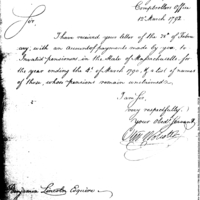 Comptrollers Office
12 March 1792
Sir
I have received your letter of the 28th of Febru
ary, with an account of payments made by you to
Invalid pensioners in the State of Massachusetts for
the year ending the 4th of March 1790, & a list of names
of those, whose pensions remain unclaimed.
I am Sir,
very respectfully
your obed Servant,
Benjamin Lincoln Esquire